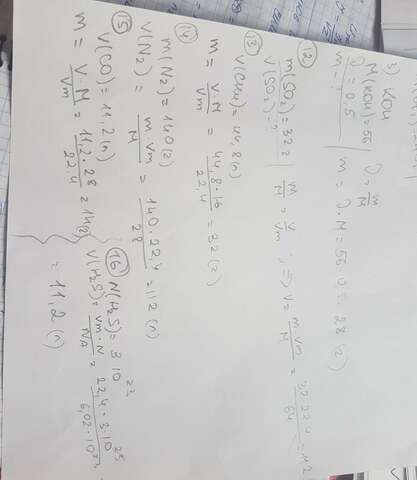 3) KOH
M(KOH)=56
ν = 0,5
m = ?
ν = m/M
m = ν·M = 56·0,5 = 28 (г)
12
m(SO₂) = 32 г
V(SO₂) = ?
m/M = V/Vm => V = m·Vm/M = 32·22,4/64 = 11,2
13
V(CH₄) = 44,8 (л)
m = V·M/Vm = 44,8·16/22,4 = 32 (г)
14
m(N₂) = 140 (г)
V(N₂) = m·Vm/M = 140·22,4/28 = 112 (л)
15
V(CO) = 11,2 (л)
m = V·M/Vm = 11,2·28/22,4 = 14 (г)
16 N(H₂S) = 3·10²³
V(H₂S) = Vm·N/NA = 22,4·3·10²³/6,02·10²³ =
= 11,2 (л)